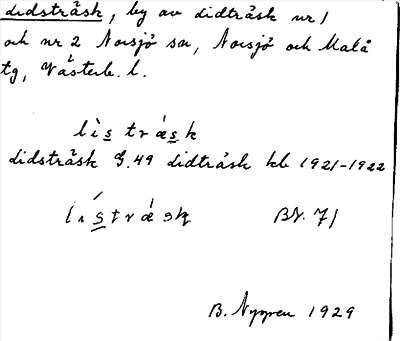 Lidsträsk, by av Lidträsk nr 1
och nr 2 Norsjö sn, Norsjö och Malå
tg, Västerb. l.
lìs trǽsk
Lidsträsk G.49 Lidträsk kb 1921-1922
lístrǽsk By. 71
B. Nygren 1929